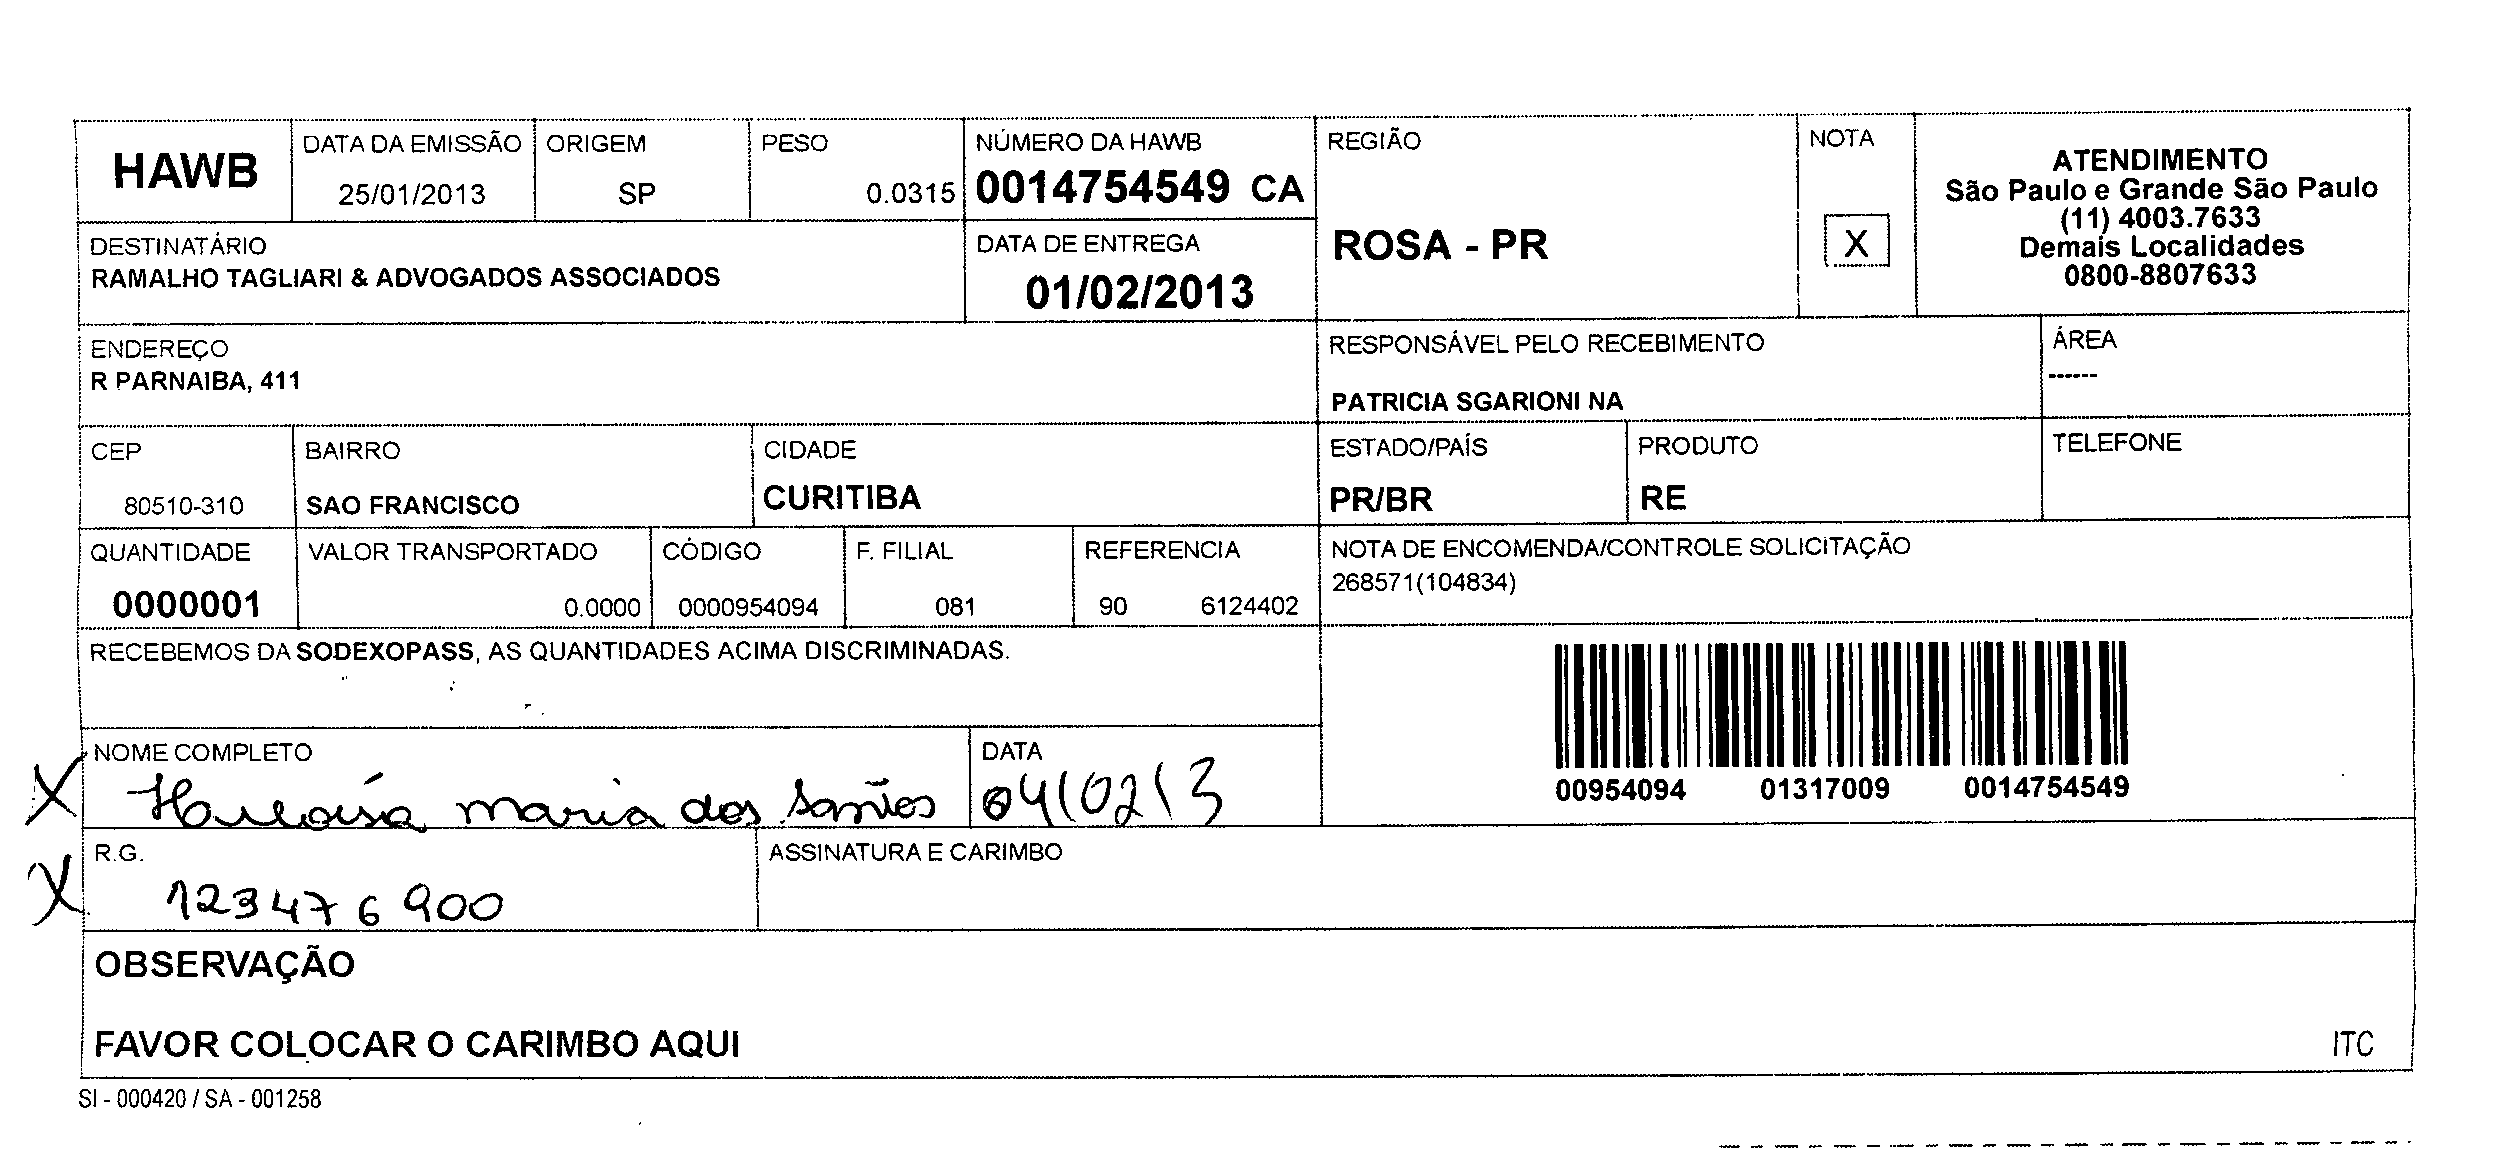 HAWB
DATA DA EMISSÃO
25/01/2013
ORIGEM
SP
PESO
0.0315
NÚMERO DA HAWB
0014754549 CA
REGIÃO
ROSA - PR
NOTA
X
ATENDIMENTO
São Paulo e Grande São Paulo
(11) 4003.7633
Demais Localidades
0800-8807633
DESTINATÁRIO
RAMALHO TAGLIARI & ADVOGADOS ASSOCIADOS
DATA DE ENTREGA
01/02/2013
ENDEREÇO
R PARNAIBA, 411
RESPONSÁVEL PELO RECEBIMENTO
PATRICIA SGARIONI NA
ÁREA
------
CEP
80510-310
BAIRRO
SAO FRANCISCO
CIDADE
CURITIBA
ESTADO/PAÍS
PR/BR
PRODUTO
RE
TELEFONE
QUANTIDADE
0000001
VALOR TRANSPORTADO
0.0000
CÓDIGO
0000954094
F. FILIAL
081
REFERENCIA
90 6124402
NOTA DE ENCOMENDA/CONTROLE SOLICITAÇÃO
268571(104834)
RECEBEMOS DA SODEXOPASS, AS QUANTIDADES ACIMA DISCRIMINADAS.
00954094 01317009 0014754549
X
NOME COMPLETO
maria dos Santos
DATA
04/02/13
X
R.G.
123476900
ASSINATURA E CARIMBO
OBSERVAÇÃO
FAVOR COLOCAR O CARIMBO AQUI
ITC
SI - 000420 / SA - 001258